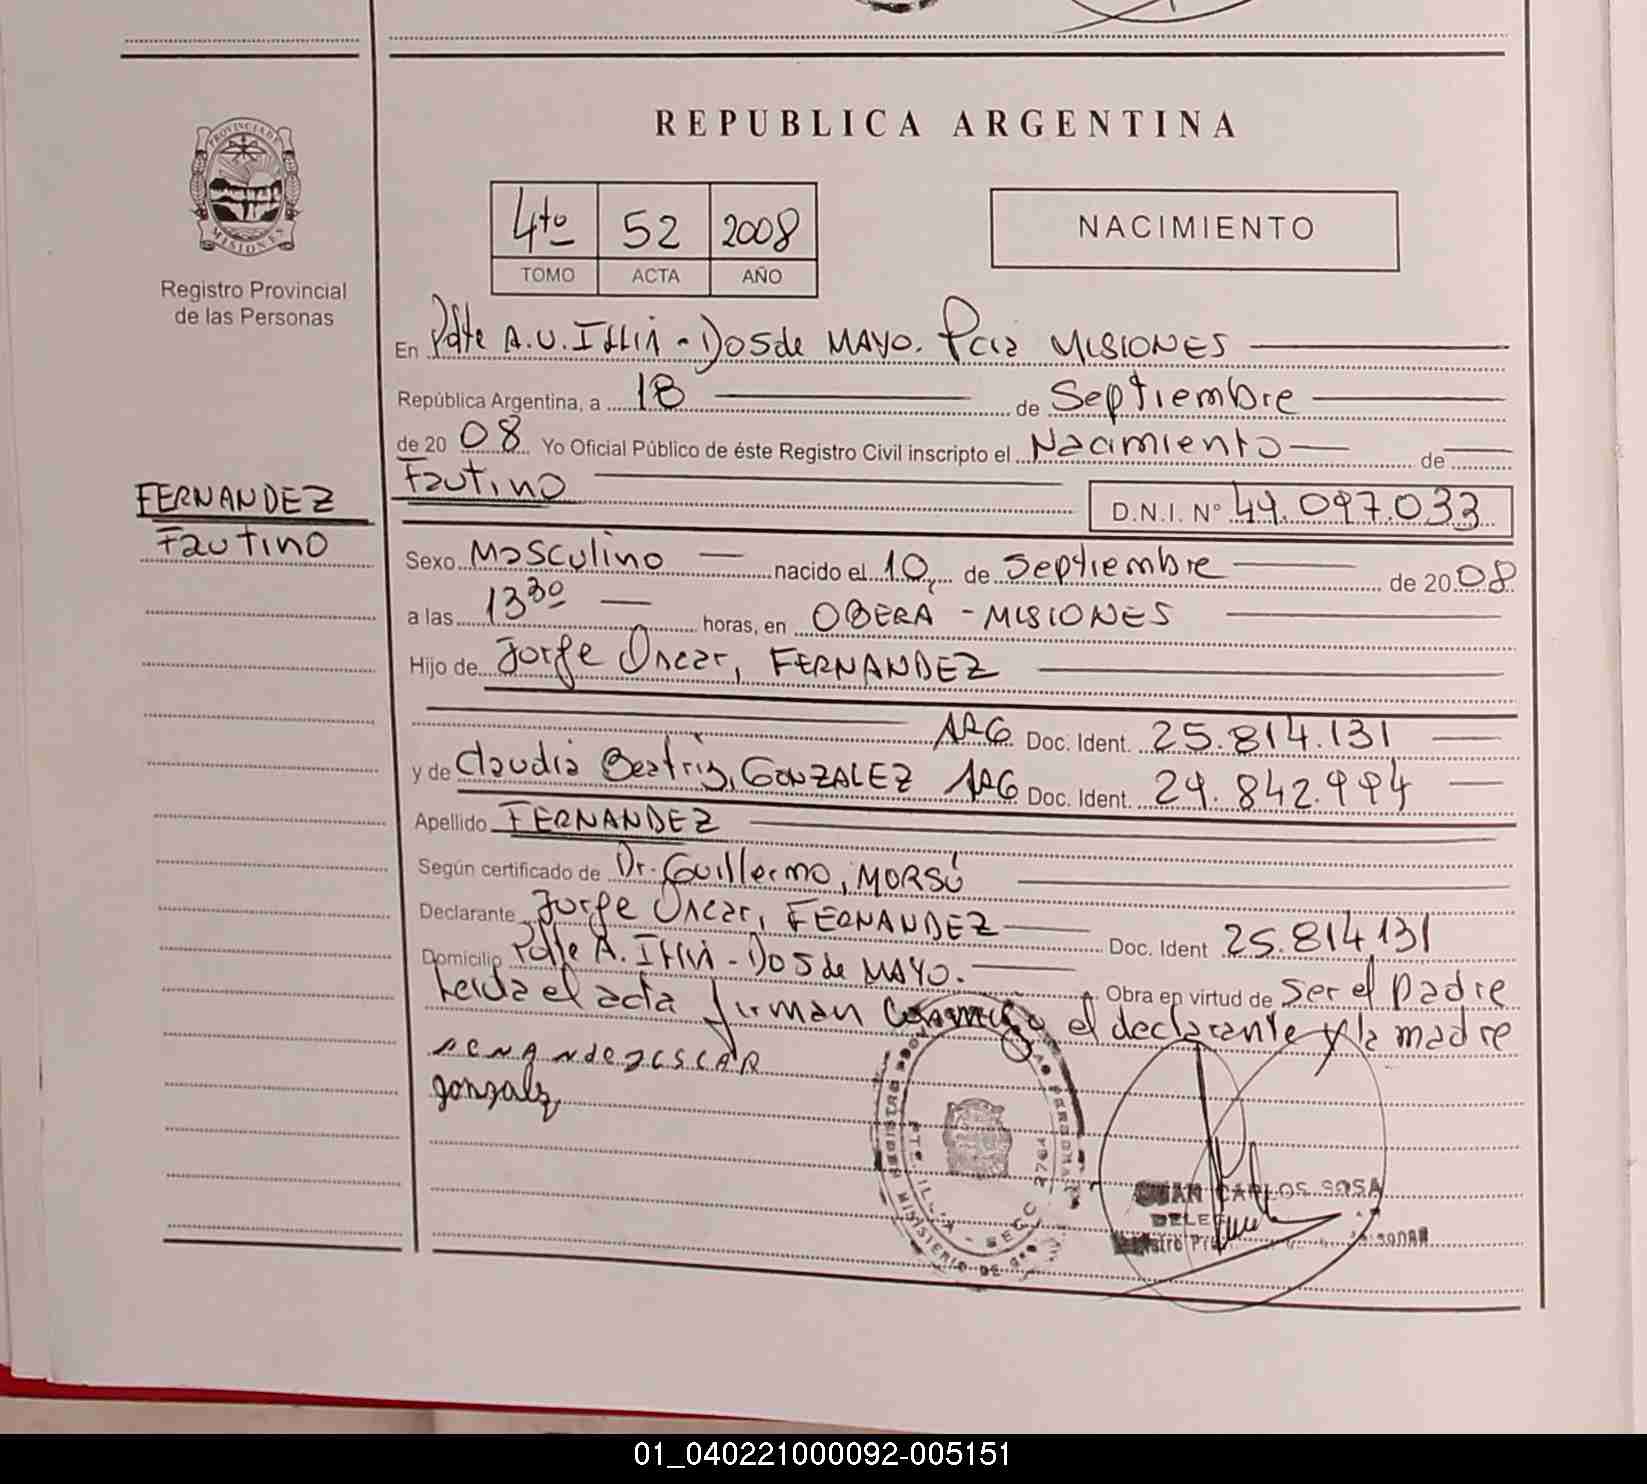 REPUBLICA ARGENTINA
PROVINCIA DE
MISIONES
Registro Provincial
de las Personas
4to 52 2008
TOMO ACTA AÑO
NACIMIENTO
En Pdte A.U. Illia - Dos de MAYO. Pcia MISIONES
República Argentina, a 18 de Septiembre
de 2008 Yo Oficial Público de éste Registro Civil inscripto el Nacimiento de
Fautino
D.N.I. N° 49.097.033
FERNANDEZ
Fautino
Sexo Masculino nacido el 10, de Septiembre de 2008
a las 13 30 horas, en OBERA - MISIONES
Hijo de Jorge Oscar, FERNANDEZ
ARG Doc. Ident. 25.814.131
y de Claudia Beatriz, GONZALEZ ARG Doc. Ident. 29.842.994
Apellido FERNANDEZ
Según certificado de Dr. Guillermo, MORSÚ
Declarante Jorge Oscar, FERNANDEZ Doc. Ident 25.814131
Domicilio Pdte A. Illia - Dos de MAYO. Obra en virtud de Ser el padre
Leida el acta firman conmigo el declarante y la madre
gonzalz
PTE. ILLIA
MINISTERIO DE
JUAN CARLOS SOSA
01_040221000092-005151